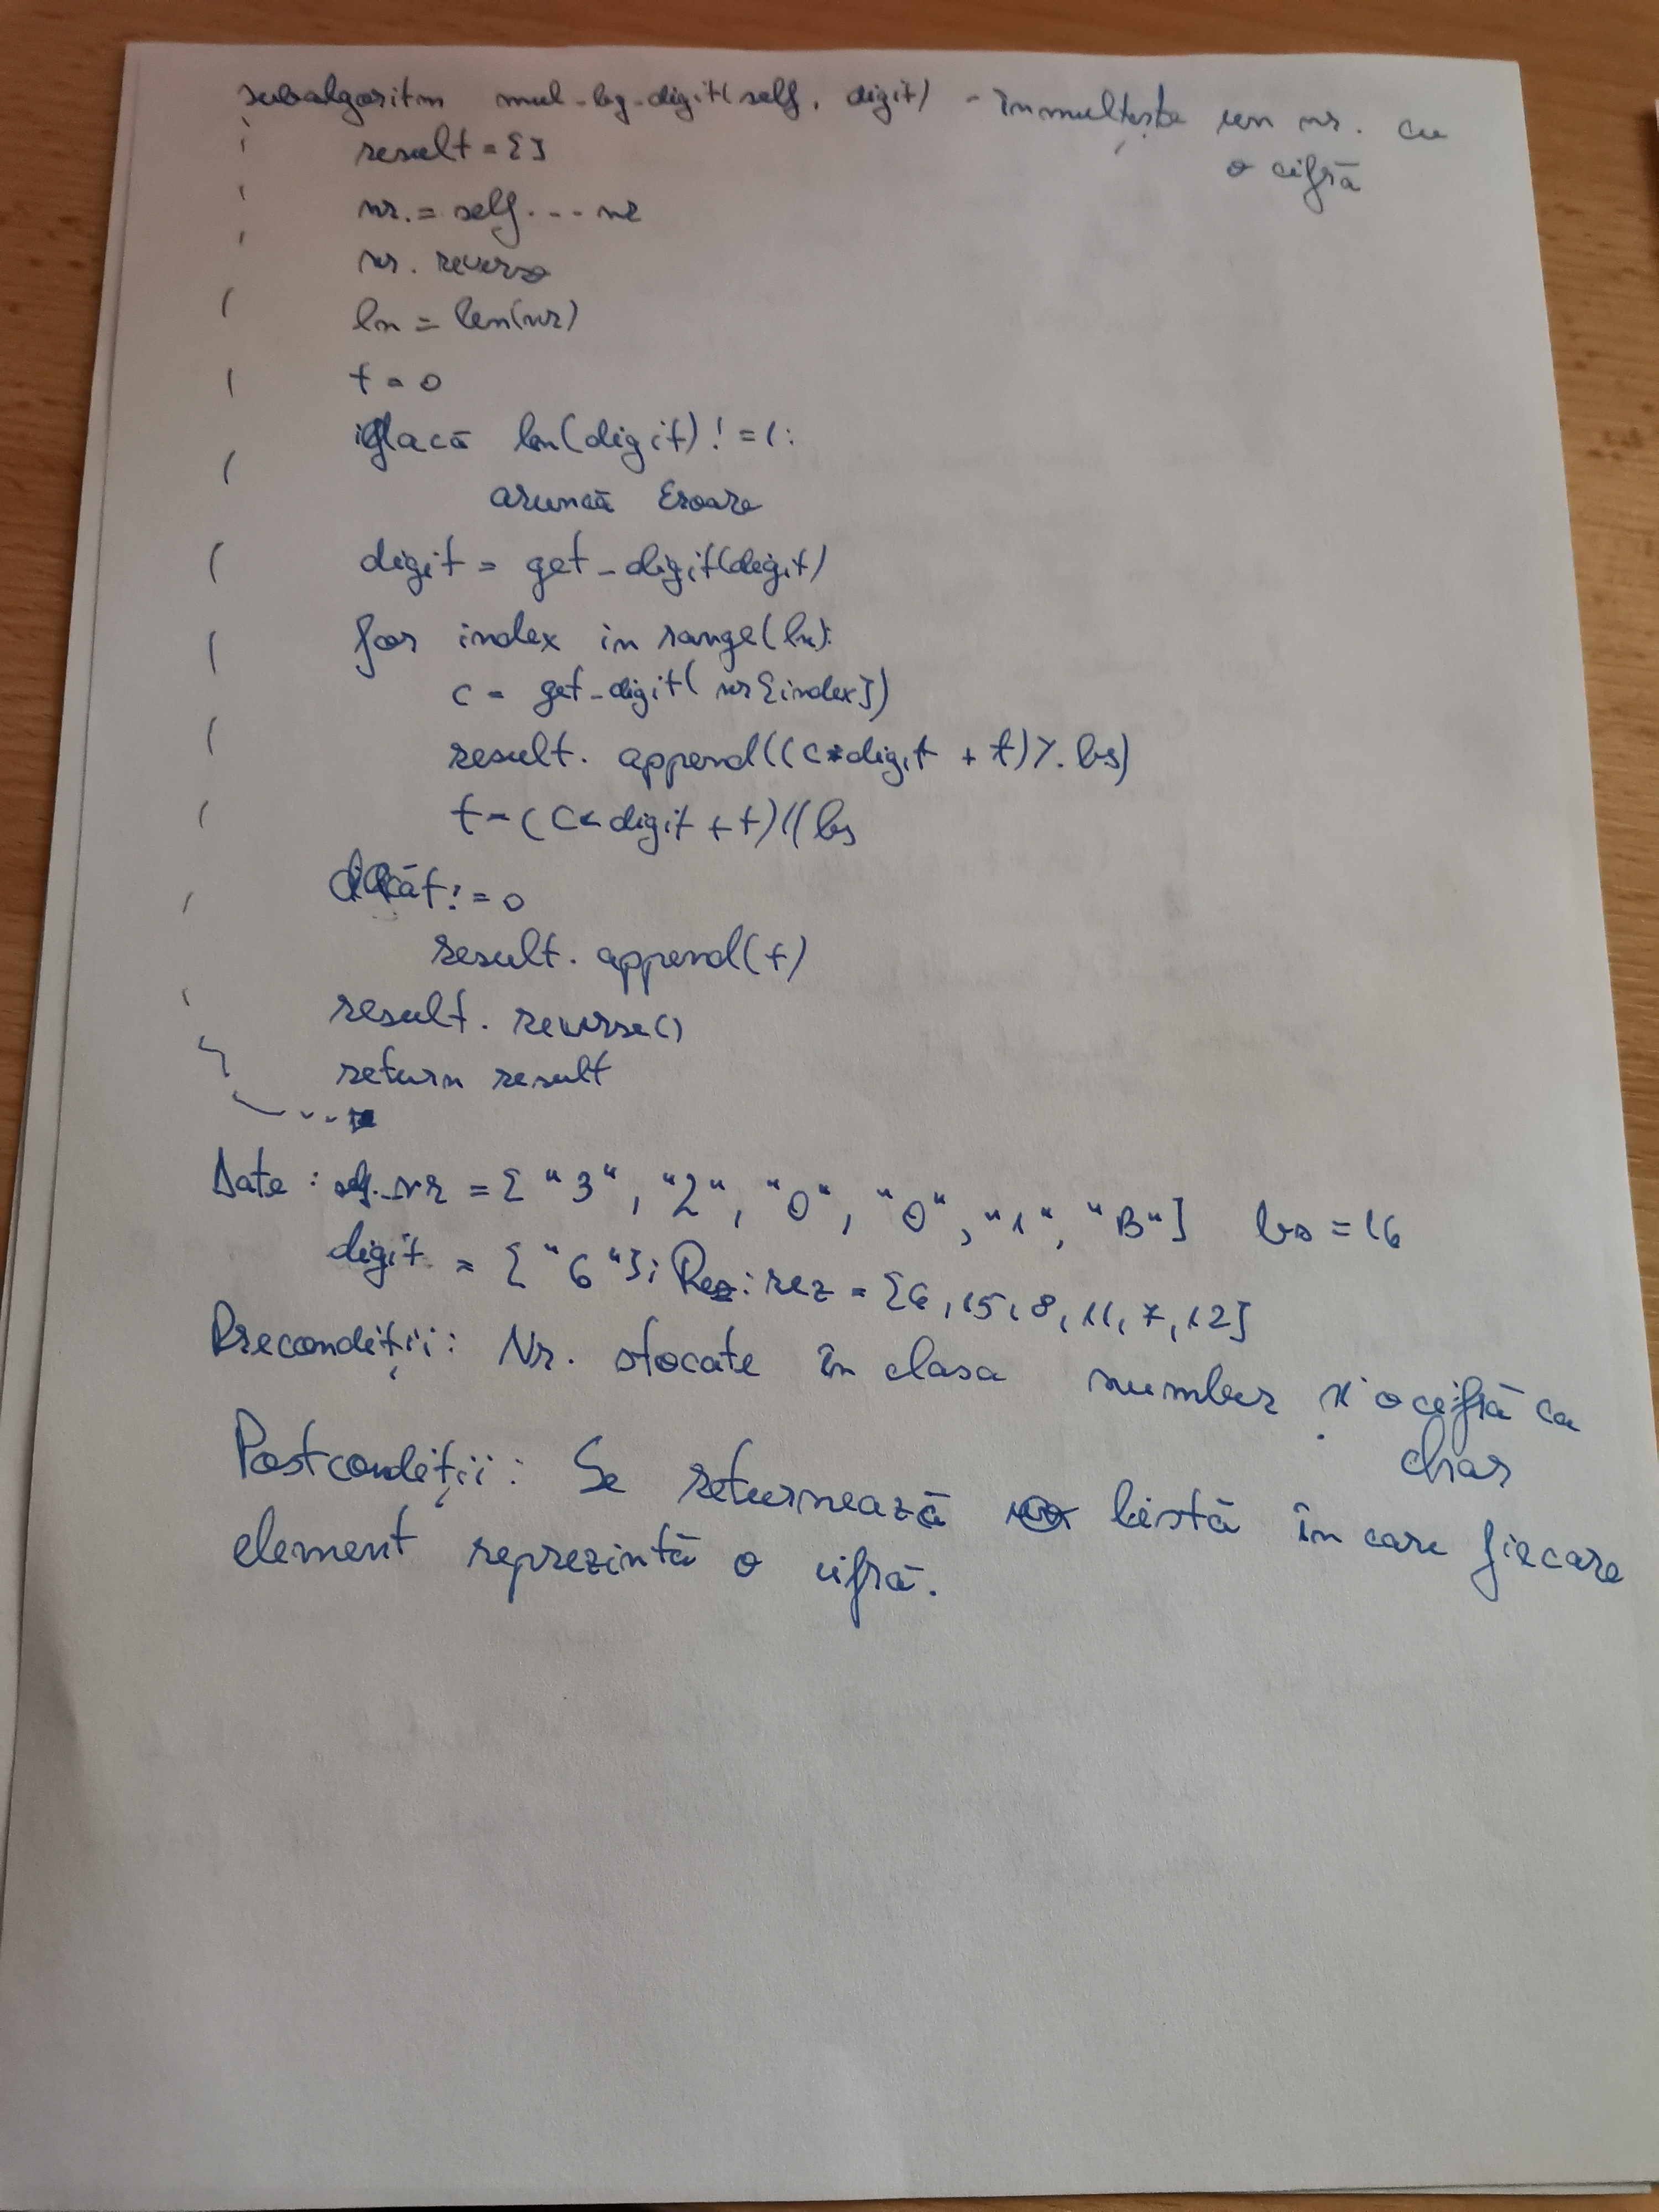 subalgoritm mul-by-digit(self, digit) - înmulțește un nr. cu
o cifră
result = []
nr. = self.--nr
nr. reverse
ln = len(nr)
t = 0
dacă len(digit) != 1:
aruncă Eroare
digit = get-digit(digit)
for index in range(ln):
c = get-digit(nr[index])
result. append((c*digit + t) % bs)
t = (c*digit + t)//bs
dacă t != 0
result. append(t)
result. reverse()
return result
Date: self.nr = ["3", "2", "0", "0", "1", "B"] bs = 16
digit = ["6"]; Rez: rez = [6, 15, 8, 11, 7, 12]
Precondiții: Nr. stocate în clasa number și o cifră ca
char
Postcondiții: Se returnează listă în care fiecare
element reprezintă o cifră.